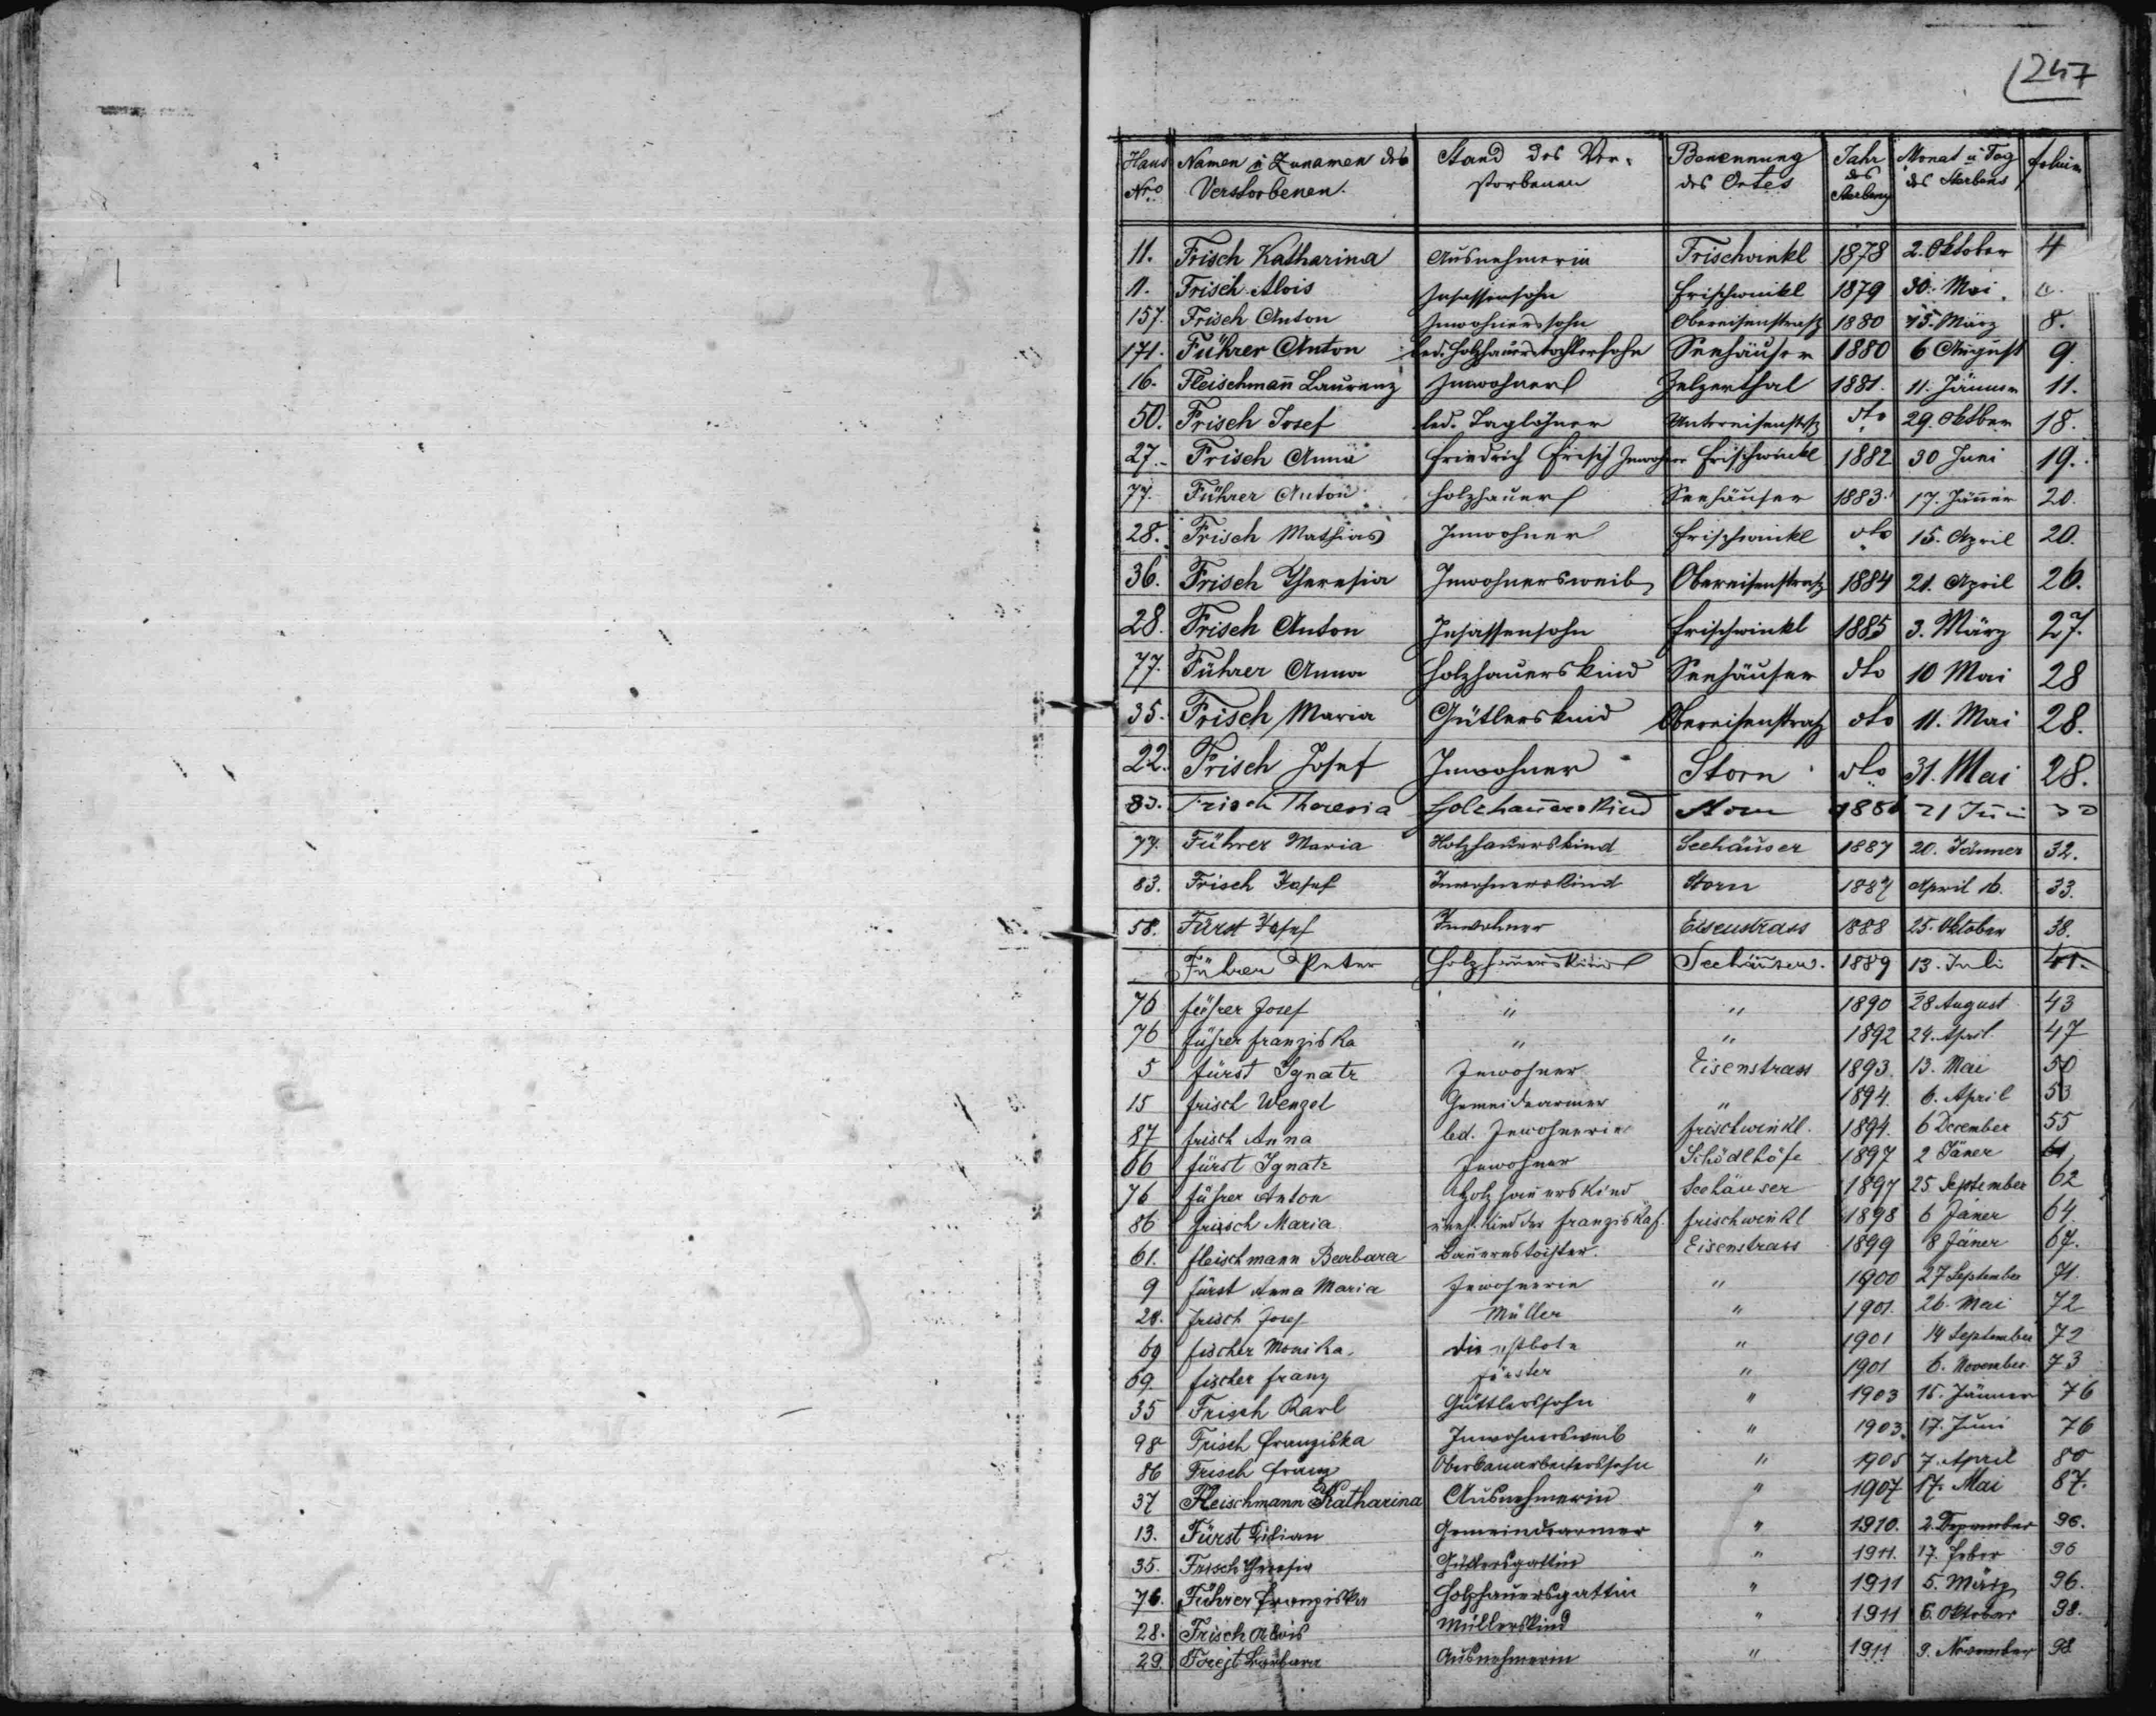 247
Haus Nro Namen u Zunamen des Verstorbenen. Stand des Verstorbenen Benennung des Ortes Jahr des Sterbens Monat u Tag des Sterbens folium
11. Frisch Katharina Ausnehmerin Frischwinkl 1878 2. Oktober 4
11. Frisch Alois Insassensohn Frischwinkl 1879 30. Mai
157. Frisch Anton Inwohnerssohn Obereisenstraß 1880 15. März 8.
171. Führer Anton led. Holzhauerstochtersohn Seehäuser 1880 6 August 9.
16. Fleischmañ Laurenz Inwohner 1881. 11. Jänner 11.
50. Frisch Josef led. Taglöhner Untereisenstß dto 29. Oktber 18.
27. Frisch Anna Friedrich Frisch Inwohner Frischwinkl 1882 30 Juni 19.
77. Führer Anton Holzhauer Seehäuser 1883. 17. Jäner 20.
28. Frisch Mathias Inwohner Frischwinkl dto 15. April 20.
36. Frisch Theresia Inwohnersweib Obereisenstraß 1884 21. April 26.
28. Frisch Anton Insassensohn Frischwinkl 1885 3. März 27.
77. Führer Anna Holzhauerskind Seehäuser dto 10 Mai 28
35. Frisch Maria Gütlerskind Obereisenstraß dto 11. Mai 28.
22. Frisch Josef Inwohner Storn dto 31. Mai 28.
83. Frisch Theresia Holzhauerskind Storn 1886 21 Juni 30
77. Führer Maria Holzhauerskind Seehäuser 1887 20. Jänner 32.
83. Frisch Josef Inwohnerskind Storn 1887 April 16. 33.
58. Fürst Josef Inwohner Eisenstrass 1888 25. Oktober 38.
Führer Peter Holzhauerskind Seehäuser. 1889 13. Juli 41.
76 führer Josef " " 1890 28 August 43
76 führer franziska " " 1892 24. April 47
5 fürst Ignatz Inwohner Eisenstrass 1893. 13. Mai 50
15 frisch Wenzel Gemeindearmer " 1894. 6. April 53
87 frisch Anna led. Inwohnerin frischwinkl. 1894. 6 December 55
66 fürst Ignatz Inwohner Schödlhöfe 1897 2 Jäner 61
76 führer Anton Holzhauerskind Seehäuser 1897 25 September 62
86 frisch Maria unehl. Kind der franziska f. frischwinkl 1898 6 Jäner 64
61. fleischmann Barbara Bauerstochter. Eisenstrass 1899 8 Jäner 67.
9 fürst Anna Maria Inwohnerin " 1900 27 September 71.
28. frisch Josef Müller " 1901. 26. Mai 72
69 fischer Monika. Dienstbote " 1901 14 September 72
69. fischer franz förster " 1901 6. November 73
35 Frisch Karl Güttlerssohn " 1903 15. Jänner 76
98 Frisch Franziska Inwohnersweib " 1903. 17. Juni 76
86 Frisch Franz Oberbauarbeiterssohn " 1905 7. April 80
37 Fleischmann Katharina Ausnehmerin " 1907 17. Mai 87.
13. Fürst Gemeindearmer " 1910. 2. Dezember 96.
35. Frisch Theresia Gütlersgattin " 1911. 17. Feber 96
76. Führer Franziska Holzhauersgattin " 1911 5. März 96.
28. Frisch Alois Müllerskind " 1911 6. Oktober 98.
29. Forejt Barbara Ausnehmerin " 1911 9. November 98